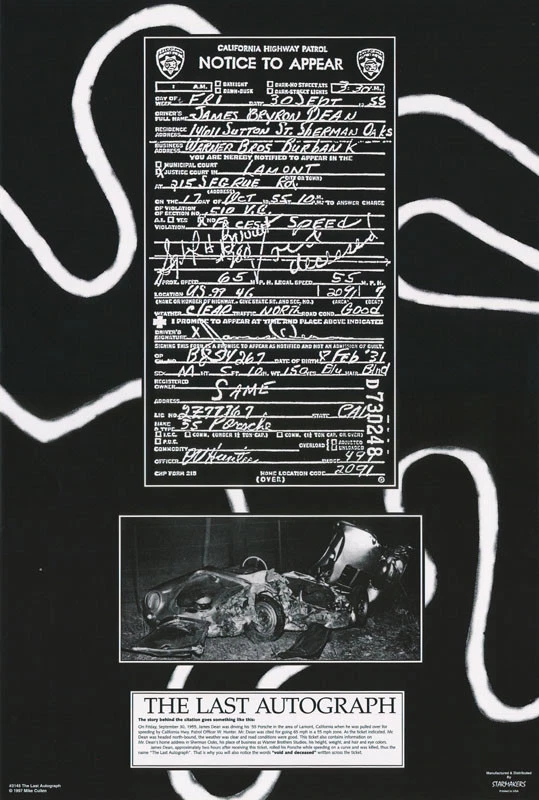 CALIFORNIA HIGHWAY PATROL
NOTICE TO APPEAR
A.M. DAYLIGHT DARK-NO STREET LTS 3:30 P.M.
DAWN-DUSK DARK-STREET LIGHTS
DAY OF WEEK FRI DATE 30 Sept 19 55
DRIVER'S FULL NAME JAMES BRYRON DEAN
RESIDENCE ADDRESS 14011 SUTTON ST. SHERMAN OAKS
BUSINESS ADDRESS WARNER BROS BURBANK
YOU ARE HEREBY NOTIFIED TO APPEAR IN THE
MUNICIPAL COURT
X JUSTICE COURT IN LAMONT
(CITY OR TOWN)
AT 215 SEGRUE RD.
(ADDRESS)
ON THE 17 DAY OF OCT 1955 10 M. TO ANSWER CHARGE
OF VIOLATION
OF SECTION NO. 510 V.C.
A.I. YES X NO
VIOLATION EXCESS SPEED
void
deceased
APROX. SPEED 65 M.P.H. LEGAL SPEED 55 M.P.H.
LOCATION US 99 46 2091 7
(NAME OR NUMBER OF HIGHWAY. GIVE STATE RT. AND SEC. NO.) (AREA) (BEAT)
WEATHER CLEAR TRAFFIC NORTH ROAD COND. Good
I PROMISE TO APPEAR AT TIME AND PLACE ABOVE INDICATED
DRIVER'S SIGNATURE X
SIGNING THIS FORM IS A PROMISE TO APPEAR AS NOTIFIED AND NOT AN ADMISSION OF GUILT.
DATE OF BIRTH 8 Feb '31
SEX M HT. 5 FT. 10 IN. WT. 150 EYES Blu HAIR Blnd
REGISTERED OWNER SAME
ADDRESS
LIC NO. 2Z77767 STATE CAL
MAKE & TYPE 55 Porsche
I.C.C. COMM. (UNDER 1½ TON CAP.) COMM. (1½ TON CAP. OR OVER)
P.U.C. OVERLOAD ADJUSTED
UNLOADED
COMMODITY
OFFICER Hunter BADGE 49
CHP FORM 215 HOME LOCATION CODE 2091
(OVER)
D730248
THE LAST AUTOGRAPH
The story behind the citation goes something like this:
On Friday, September 30, 1955, James Dean was driving his '55 Porche in the area of Lamont, California when he was pulled over for
speeding by California Hwy. Patrol Officer W. Hunter. Mr. Dean was cited for going 65 mph in a 55 mph zone. As the ticket indicated, Mr.
Dean was headed north-bound, the weather was clear and road conditions were good. This ticket also contains information on
Mr. Dean's home address in Sherman Oaks, his place of business at Warner Brothers Studios, his height, weight, and hair and eye colors.
James Dean, approximately two hours after receiving this ticket, rolled his Porsche while speeding on a curve and was killed, thus the
name "The Last Autograph". That is why you will also notice the words "void and deceased" written across the ticket.
#3145 The Last Autograph
© 1997 Mike Cullen
Manufactured & Distributed
By
STARMAKERS
Printed in USA